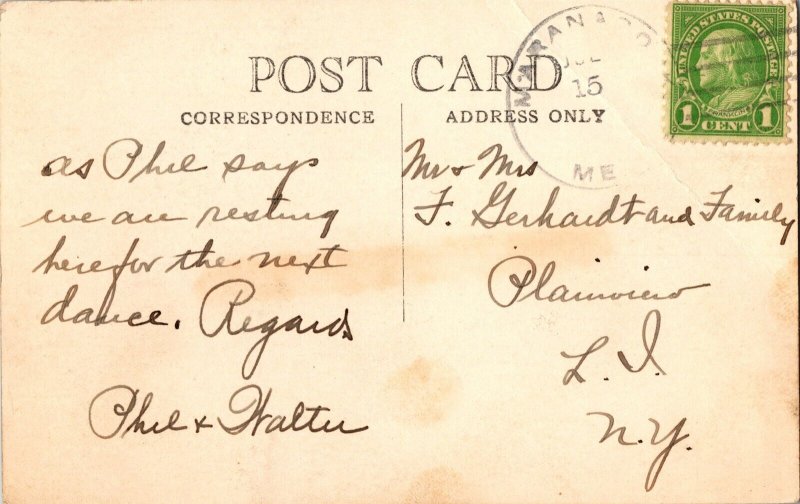 POST CARD
CORRESPONDENCE
ADDRESS ONLY
MARANACO
JUL
15
ME
UNITED STATES POSTAGE
FRANKLIN
1 CENT 1
as Phil says
we are resting
here for the next
dance. Regards
Phil & Walter
Mr & Mrs
F. Gerhardt and Family
Plainview
L. I.
N.Y.